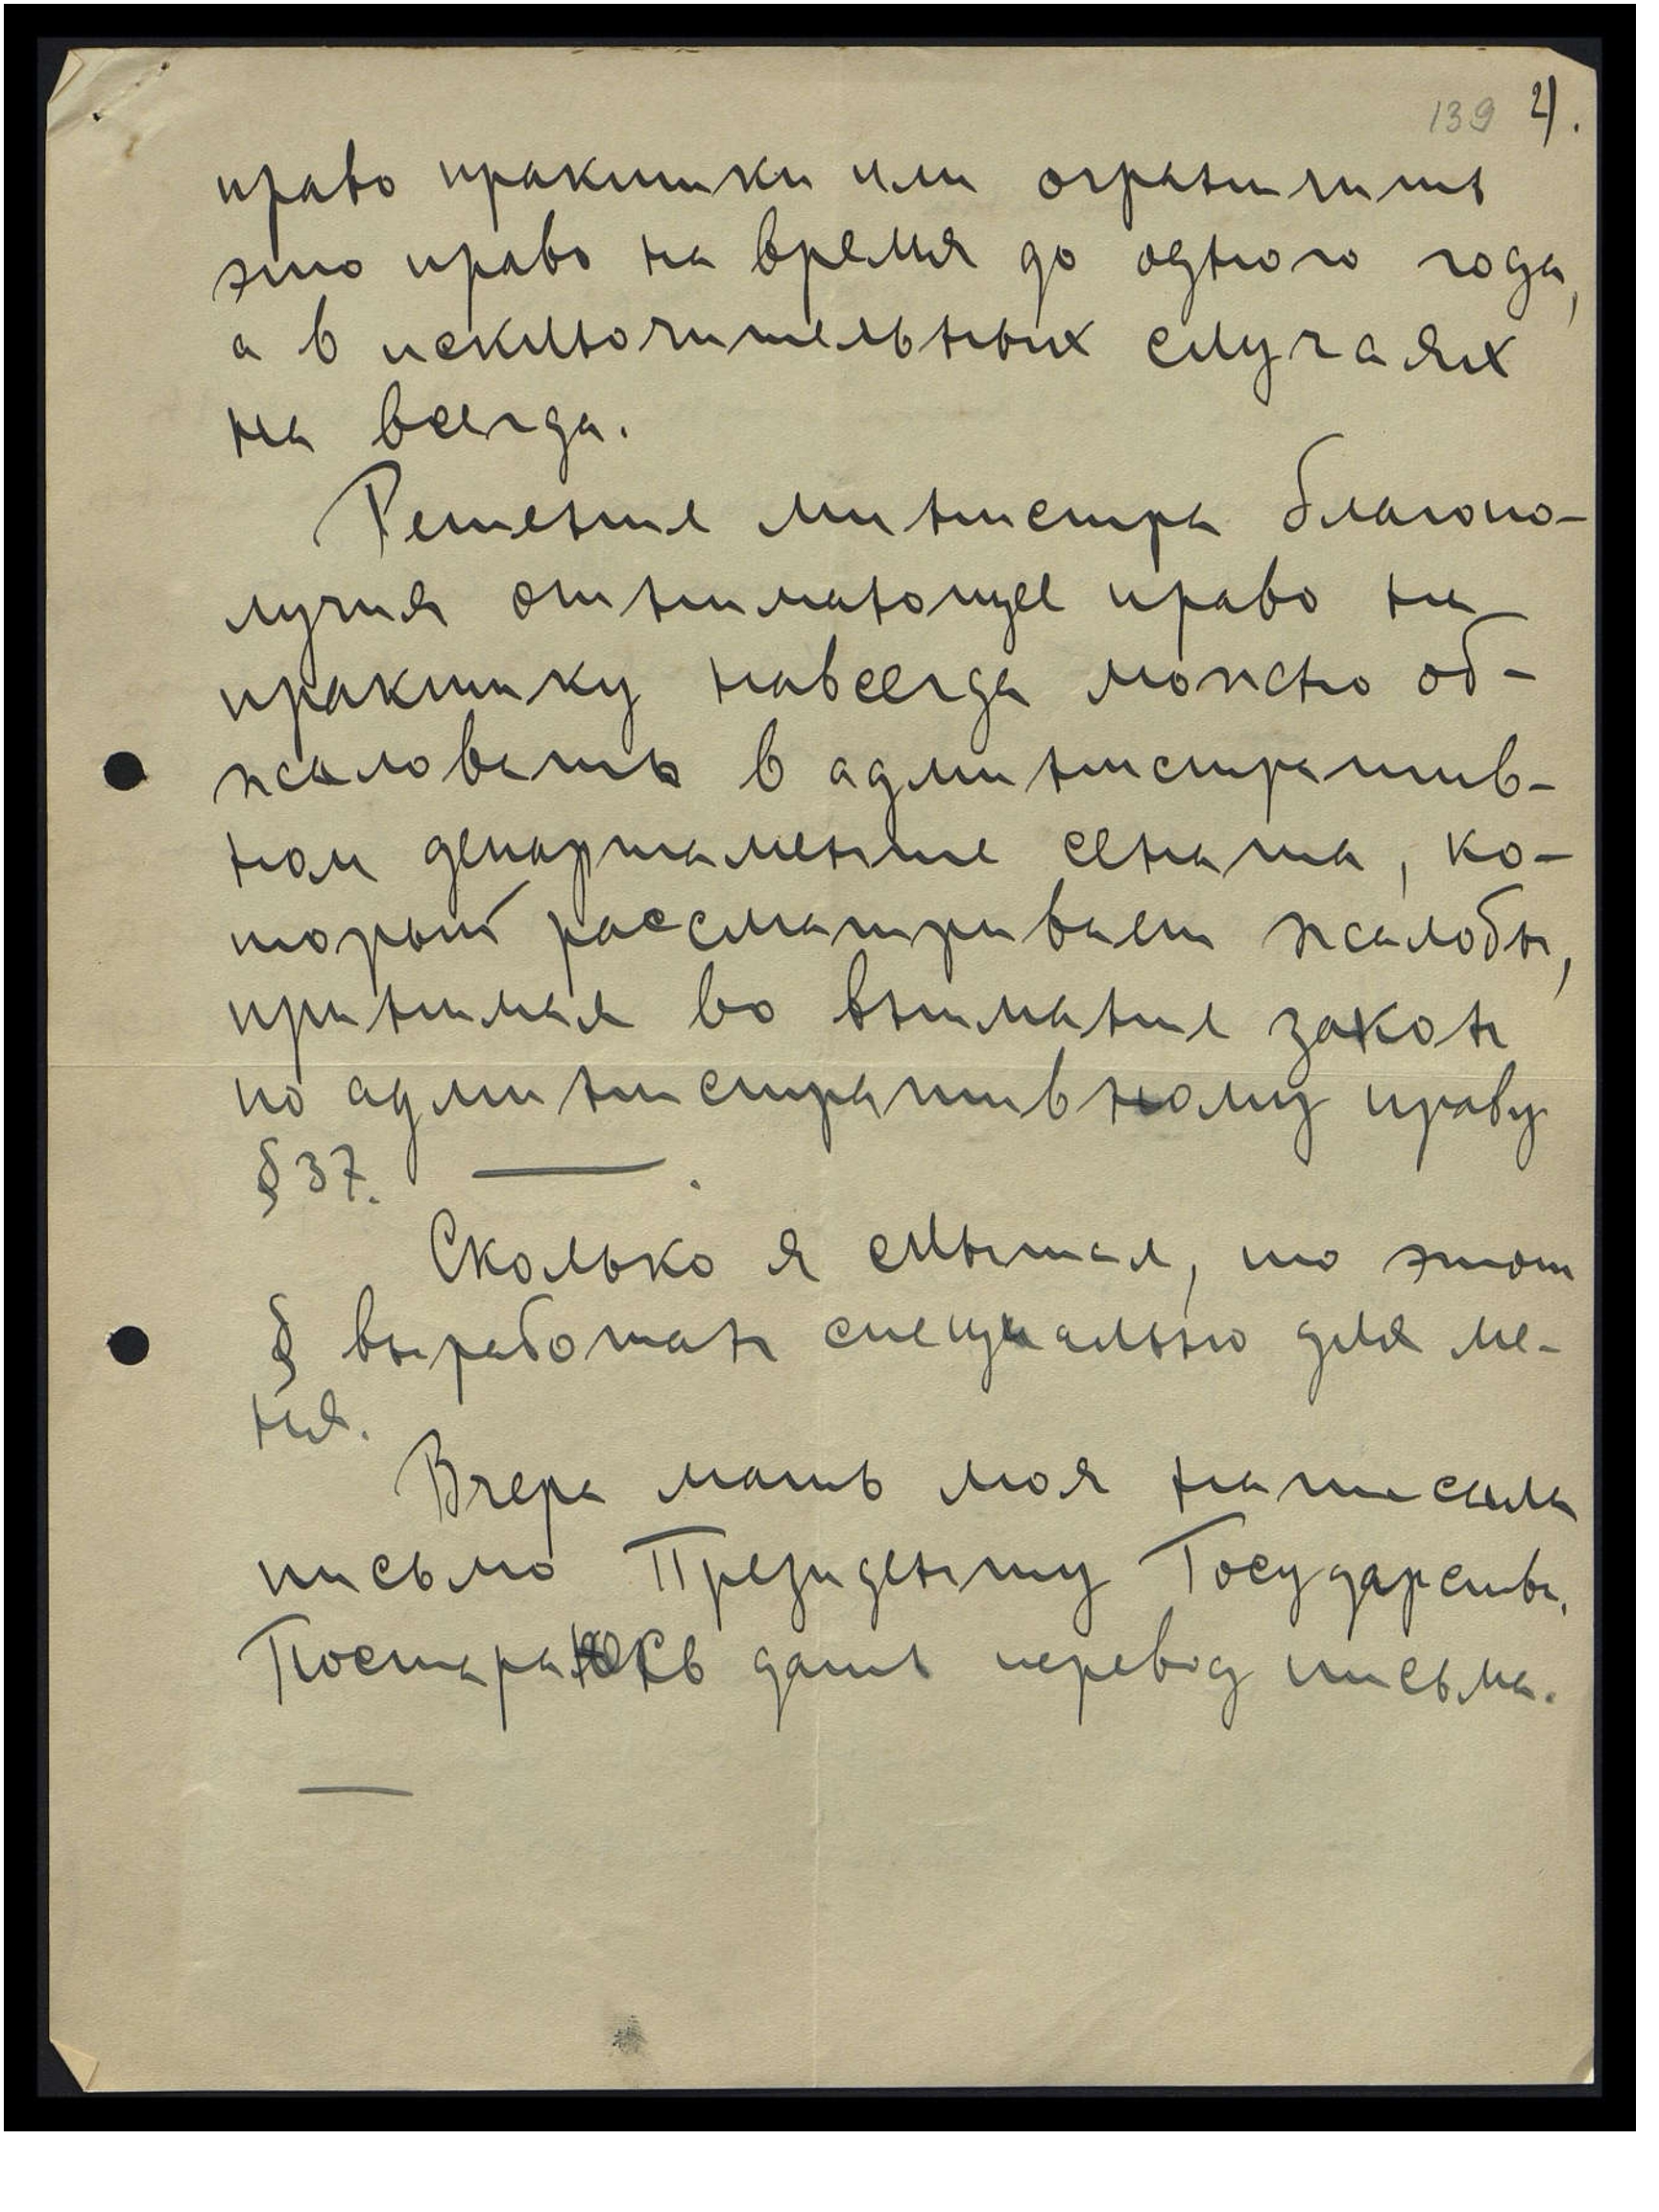 139 2).
право практики или ограничить
это право на время до одного года,
а в исключительных случаях
на всегда.
Решение министра благопо-
лучия отнимающее право на
практику навсегда можно об-
жаловать в административ-
ном департаменте сената, ко-
торый рассматривает жалобы,
принимая во внимание закон
по административному праву
§ 37. ——.
Сколько я слышал, то этот
§ выработан специально для ме-
ня.
Вчера мать моя написала
письмо Президенту Государства.
Постараюсь дать перевод письма.
—